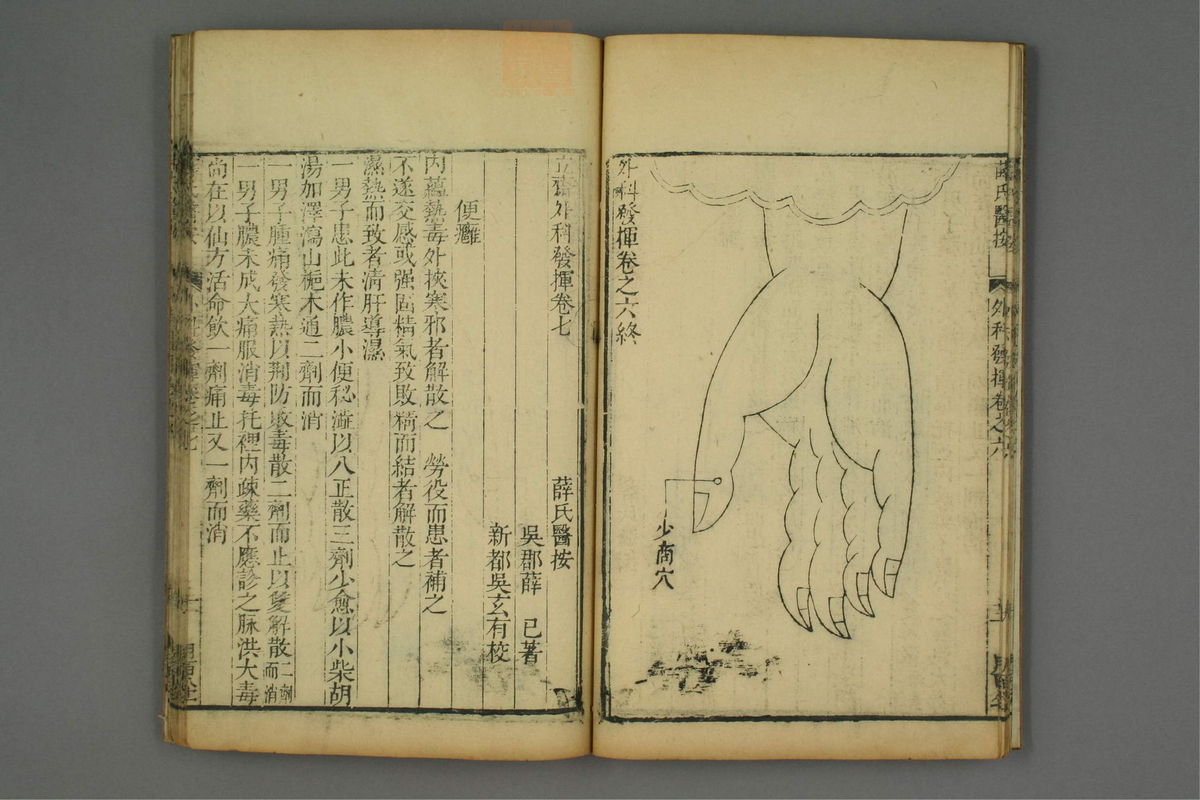 薛氏醫按
外科發揮卷之六
少商穴
外科發揮卷之六終
立齋外科發揮卷七
薛氏醫按
吳郡薛 已著
新都吳玄有校
便癰
內蘊熱毒外挾寒邪者解散之 勞役而患者補之
不遂交感或强固精氣致敗精而結者解散之
濕熱而致者清肝導濕
一男子患此未作膿小便秘澁以八正散三劑少愈以小柴胡
湯加澤瀉山梔木通二劑而消
一男子腫痛發寒熱以荆防敗毒散二劑而止以雙解散二劑而消
一男子膿未成大痛服消毒托裡內疎藥不應診之脉洪大毒
尚在以仙方活命飲一劑痛止又一劑而消